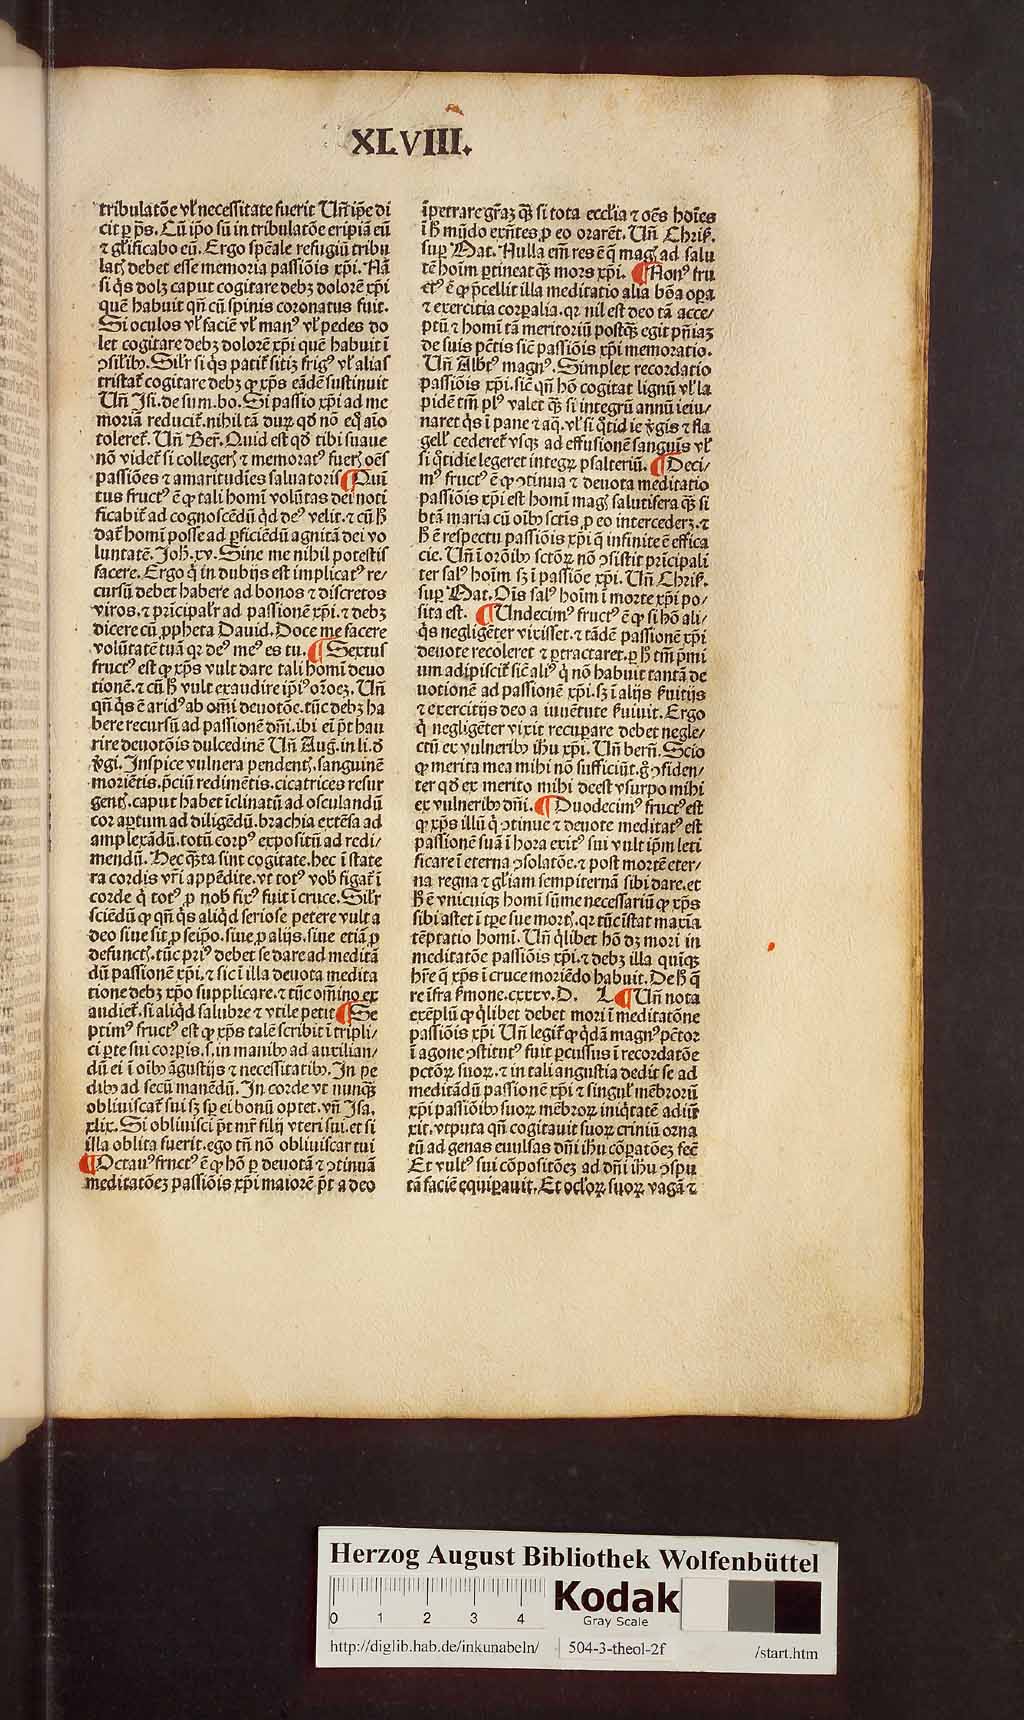 XLVIII.
tribulatõe vł necessitate fuerit Uñ ip̃e di
cit p p̃s. Cũ ip̃o sũ in tribulatõe eripiã eũ
⁊ gl̃ificabo eũ. Ergo sp̃eale refugiũ tribu
latꝭ debet esse memoria passiõis xp̃i. Nã
si q̃s dolꝫ caput cogitare debꝫ dolorẽ xp̃i
quẽ habuit qñ cũ spinis coronatus fuit.
Si oculos vł faciẽ vł manꝰ vł pedes do
let cogitare debꝫ dolorẽ xp̃i quẽ habuit ĩ
ↄsilibꝫ. Silr̃ si q̃s patit̃ sitiꝫ frigꝰ vł alias
tristat̃ cogitare debꝫ ꝙ xp̃s eãdẽ sustinuit
Uñ Isi. de sum. bo. Si passio xp̃i ad me
moriã reducit̃. nihil tã durꝫ qđ nõ eq̃ aĩo
toleret̃. Uñ Ber̃. Quid est qđ tibi suaue
nõ videt̃ si collegerꝭ ⁊ memoratꝰ fuerꝭ oẽs
passiões ⁊ amaritudĩes saluatoris ¶ Quĩ
tus fructꝰ ẽ ꝙ tali homĩ volũtas dei noti
ficabit̃ ad cognoscẽdũ q̃d deꝰ velit. ⁊ cũ ħ
dat̃ homĩ posse ad ꝑficiẽdũ agnitã dei vo
luntatẽ. Joħ. xv. Sine me nihil potestis
facere. Ergo q̃ in dubijs est implicatꝰ re/
cursũ debet habere ad bonos ⁊ discretos
viros. ⁊ prĩcipalr̃ ad passionẽ xp̃i. ⁊ debꝫ
dicere cũ ꝓpheta Dauid. Doce me facere
volũtatẽ tuã qꝛ deꝰ meꝰ es tu. ¶ Sextus
fructꝰ est ꝙ xp̃s vult dare tali homĩ deuo
tionẽ. ⁊ cũ ħ vult exaudire ip̃iꝰ or̃oeꝫ. Uñ
qñ q̃s ẽ aridꝰ ab om̃i deuotõe. tũc debꝫ ha
bere recursũ ad passionẽ dñi. ibi em̃ p̃t hau
rire deuotõis dulcedinẽ Uñ Aug̃. in li. đ
ṽgi. Inspice vulnera pendentꝭ. sanguinẽ
moriẽtis. p̃ciũ redimẽtis. cicatrices resur
gentꝭ. caput habet ĩclinatũ ad osculandũ
cor aꝑtum ad diligẽdũ. brachia extẽsa ad
amplexãdũ. totũ corpꝰ expositũ ad redi/
mendũ. Hec q̃nta sint cogitate. hec ĩ state
ra cordis vr̃i appẽdite. vt totꝰ vob̃ figat̃ ĩ
corde q̃ totꝰ ꝓ nob̃ fixꝰ fuit ĩ cruce. Silr̃
sciẽdũ ꝙ qñ q̃s aliq̃d seriose petere vult a
deo siue sit ꝓ seip̃o. siue ꝓ alijs. siue etiã ꝓ
defunctꝭ. tũc priꝰ debet se dare ad meditã
dũ passionẽ xp̃i. ⁊ sic ĩ illa deuota medita
tione debꝫ xp̃o supplicare. ⁊ tũc om̃ino ex
audiet̃. si aliq̃d salubre ⁊ vtile petit ¶ Se
ptimꝰ fructꝰ est ꝙ xp̃s talẽ scribit ĩ tripli/
ci ꝑte sui corp̃is. s. in manibꝫ ad auxilian/
dũ ei ĩ oĩbꝫ ãgustijs ⁊ necessitatibꝫ. In pe
dibꝫ ad secũ manẽdũ. In corde vt nunq̃ꝫ
obliuiscat̃ sui sꝫ sp̃ ei bonũ optet. vñ Isa.
xlix. Si obliuisci p̃t mr̃ filij vteri sui. et si
illa oblita fuerit. ego tñ nõ obliuiscar tui
¶ Octauꝰ fructꝰ ẽ ꝙ hõ ꝑ deuotã ⁊ ↄtinuã
meditatõeꝫ passiõis xp̃i maiorẽ p̃t a deo
ĩpetrare gr̃aꝫ q̃ꝫ si tota ecc̃lia ⁊ oẽs hoĩes
ĩ ħ mũdo exñtes ꝓ eo orarẽt. Uñ Chris̃.
sup̱ Mat. Nulla em̃ res ẽ q̃ magꝭ ad salu
tẽ hoim ꝑtineat q̃ꝫ mors xp̃i. ¶ Nonꝰ fru
ctꝰ ẽ ꝙ p̃cellit illa meditatio alia bõa oꝑa
⁊ exercitia corꝑalia. qꝛ nil est deo tã acce/
ptũ ⁊ homĩ tã meritoriũ postq̃ꝫ egit pñiaꝫ
de suis pctĩs sic̃ passiõis xp̃i memoratio.
Uñ Alb̃tꝰ magnꝰ. Simplex recordatio
passiõis xp̃i. sic̃ qñ hõ cogitat lignũ vł la
pidẽ tm̃ plꝰ valet q̃ꝫ si integrũ annũ ieiu/
naret q̃s ĩ pane ⁊ aq̃. vł si q̃tid ie ṽgis ⁊ fla
gell̃ cederet̃ vsqꝫ ad effusionẽ sanguis vł
si q̃tidie legeret integrꝫ psalteriũ. ¶ Deci/
mꝰ fructꝰ ẽ ꝙ ↄtinua ⁊ deuota meditatio
passiõis xp̃i est homĩ magꝭ salutifera q̃ꝫ si
btã maria cũ oĩbꝫ sctĩs ꝓ eo intercederꝫ. ⁊
ħ ẽ respectu passiõis xp̃i q̃ infinite ẽ effica
cie. Uñ ĩ or̃oĩbꝫ sctõꝝ nõ ↄsistit prĩcipali
ter salꝰ hoim sꝫ ĩ passiõe xp̃i. Uñ Chris̃.
sup̱ Mat. Oĩs salꝰ hoim ĩ morte xp̃i po/
sita est. ¶ Undecimꝰ fructꝰ ẽ ꝙ si hõ ali/
q̃s negligẽter vixisset. ⁊ tãdẽ passionẽ xp̃i
deuote recoleret ⁊ ꝑtractaret. ꝑ ħ tm̃ p̃mi
um adipiscit̃ sic̃ aliꝰ q̃ nõ habuit tantã de
uotionẽ ad passionẽ xp̃i. sꝫ ĩ alijs ẜuitijs
⁊ exercitijs deo a iuuẽtute ẜuiuit. Ergo
q̃ negligẽter vixit recuꝑare debet negle/
ctũ ex vulneribꝫ ihũ xp̃i. Uñ bern̄. Scio
ꝙ merita mea mihi nõ sufficiũt. g̃ ↄfiden/
ter qđ ex merito mihi deest vsurpo mihi
ex vulneribꝫ dñi. ¶ Duodecimꝰ fructꝰ est
ꝙ xp̃s illũ q̃ ↄtinue ⁊ deuote meditatꝰ est
passionẽ suã ĩ hora exitꝰ sui vult ip̃m leti
ficare ĩ eterna ↄsolatõe. ⁊ post mortẽ eter/
na regna ⁊ gl̃iam sempiternã sibi dare. et
ħ ẽ vnicuiqꝫ homĩ sũme necessariũ ꝙ xp̃s
sibi astet ĩ tp̃e sue mortꝭ. qꝛ tũc ĩstat maxĩa
tẽptatio homĩ. Uñ q̃libet hõ dꝫ mori in
meditatõe passiõis xp̃i. ⁊ debꝫ illa quiqꝫ
hr̃e q̃ xp̃s ĩ cruce moriẽdo habuit. De ħ q̃
re ĩfra ẜmone. cxxxv. D. L ¶ Uñ nota
exẽplũ ꝙ q̃libet debet mori ĩ meditatõne
passiõis xp̃i Uñ legit̃ ꝙ q̃dã magnꝰ pẽtor
ĩ agone ↄstitutꝰ fuit ꝑcussus ĩ recordatõe
pctõꝝ suoꝝ. ⁊ in tali angustia dedit se ad
meditãdũ passionẽ xp̃i ⁊ singul̃ mẽbrorũ
xp̃i passiõibꝫ suoꝝ mẽbroꝝ iniq̃tatẽ adiũ
xit. vtputa qñ cogitauit suoꝝ criniũ orna
tũ ad genas euulsas dñi ihũ cõꝑatõeꝫ fec̃
Et vultꝰ sui cõpositõeꝫ ad dñi ihũ ↄspu
tã faciẽ equiparauit. Et ocl̃oꝝ suoꝝ vagã ⁊
Herzog August Bibliothek Wolfenbüttel
0 1 2 3 4
Kodak
Gray Scale
http://diglib.hab.de/inkunabeln/ 504-3-theol-2f /start.htm